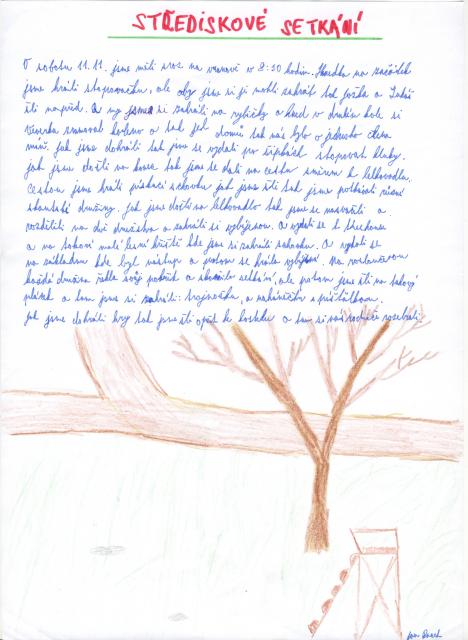 STŘEDISKOVÉ SETKÁNÍ
V sobotu 11.11. jsme měli sraz na v 8:30 hodin. na začátek
jsme hráli stopovačku, ale aby jsme si ji mohli zahrát tak Jožka a Lukáš
šli napřed. A my jsme si zahráli na rybičky a hned v druhém kole si
koleno a tak jel domů tak nás bylo o jednoho člena
míň. Jak jsme dohráli tak jsme se vydali po šipkách stopovat kluky.
Jak jsme došli na konec tak jsme se dali na cestu směrem k letkovadlu.
Cestou jsme hráli pískací schovku jak jsme šli tak jsme potkávali různé
skautské družiny. Jak jsme došli na tak jsme se nasvačili a
rozdělili na dvě družstva a zahráli si vybíjenou. A vydali se k
a na takové malé lesní hřiště kde jsme si zahráli schovku. A vydali se
na základnu kde byl nástup a potom se hrála vybíjená. Na
každá družina řekla svůj pokřik a skončilo setkání, ale potom jsme šli na takový
plácek a tam jsme si zahráli: trojnožku, a s píšťalkou.
Jak jsme dohráli hry tak jsme šli opět ke kostelu a tam si nás rodiče rozebrali.